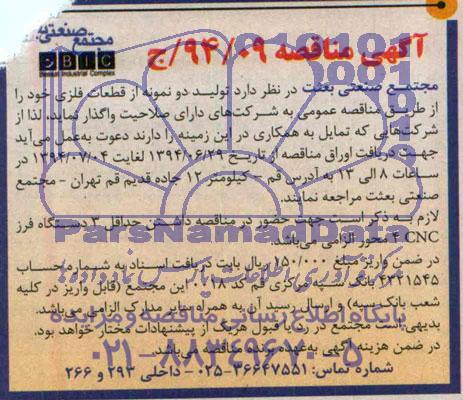 مجتمع صنعتی
BIC
Besat Industrial Complex
آگهی مناقصه ۹۴/۰۹/ج
مجتمع صنعتی بعثت در نظر دارد تولید دو نمونه از قطعات فلزی خود را
از طریق مناقصه عمومی به شرکت‌های دارای صلاحیت واگذار نماید، لذا از
شرکت‌هایی که تمایل به همکاری در این زمینه را دارند دعوت به‌عمل می‌آید
جهت دریافت اوراق مناقصه از تاریخ ۱۳۹۴/۰۶/۲۹ لغایت ۱۳۹۴/۰۷/۰۴ در
ساعات ۸ الی ۱۳ به آدرس قم – کیلومتر ۱۲ جاده قدیم قم تهران – مجتمع
صنعتی بعثت مراجعه نمایند.
لازم به ذکر است جهت حضور در مناقصه داشتن حداقل ۳ دستگاه فرز
CNC ۴ محور الزامی می‌باشد.
در ضمن واریز مبلغ ۱۵۰/۰۰۰ ریال بابت دریافت اسناد به شماره حساب
۴۲۲۱۵۴۵ بانک سپه مرکزی قم کد این مجتمع (قابل واریز در کلیه
شعب بانک سپه) و ارسال رسید آن به همراه سایر مدارک الزامی می‌باشد.
بدیهی است مجتمع در رد یا قبول هریک از پیشنهادات مختار خواهد بود.
در ضمن هزینه آگهی به‌عهده برنده مناقصه می‌باشد.
شماره تماس: ۳۶۶۴۷۵۵۱-۰۲۵ – داخلی ۲۹۳ و ۲۶۶
ParsNamadData
پایگاه اطلاع رسانی مناقصه و مزایده
۰۲۱-۸۸۳۴۹۶۷۰-۵